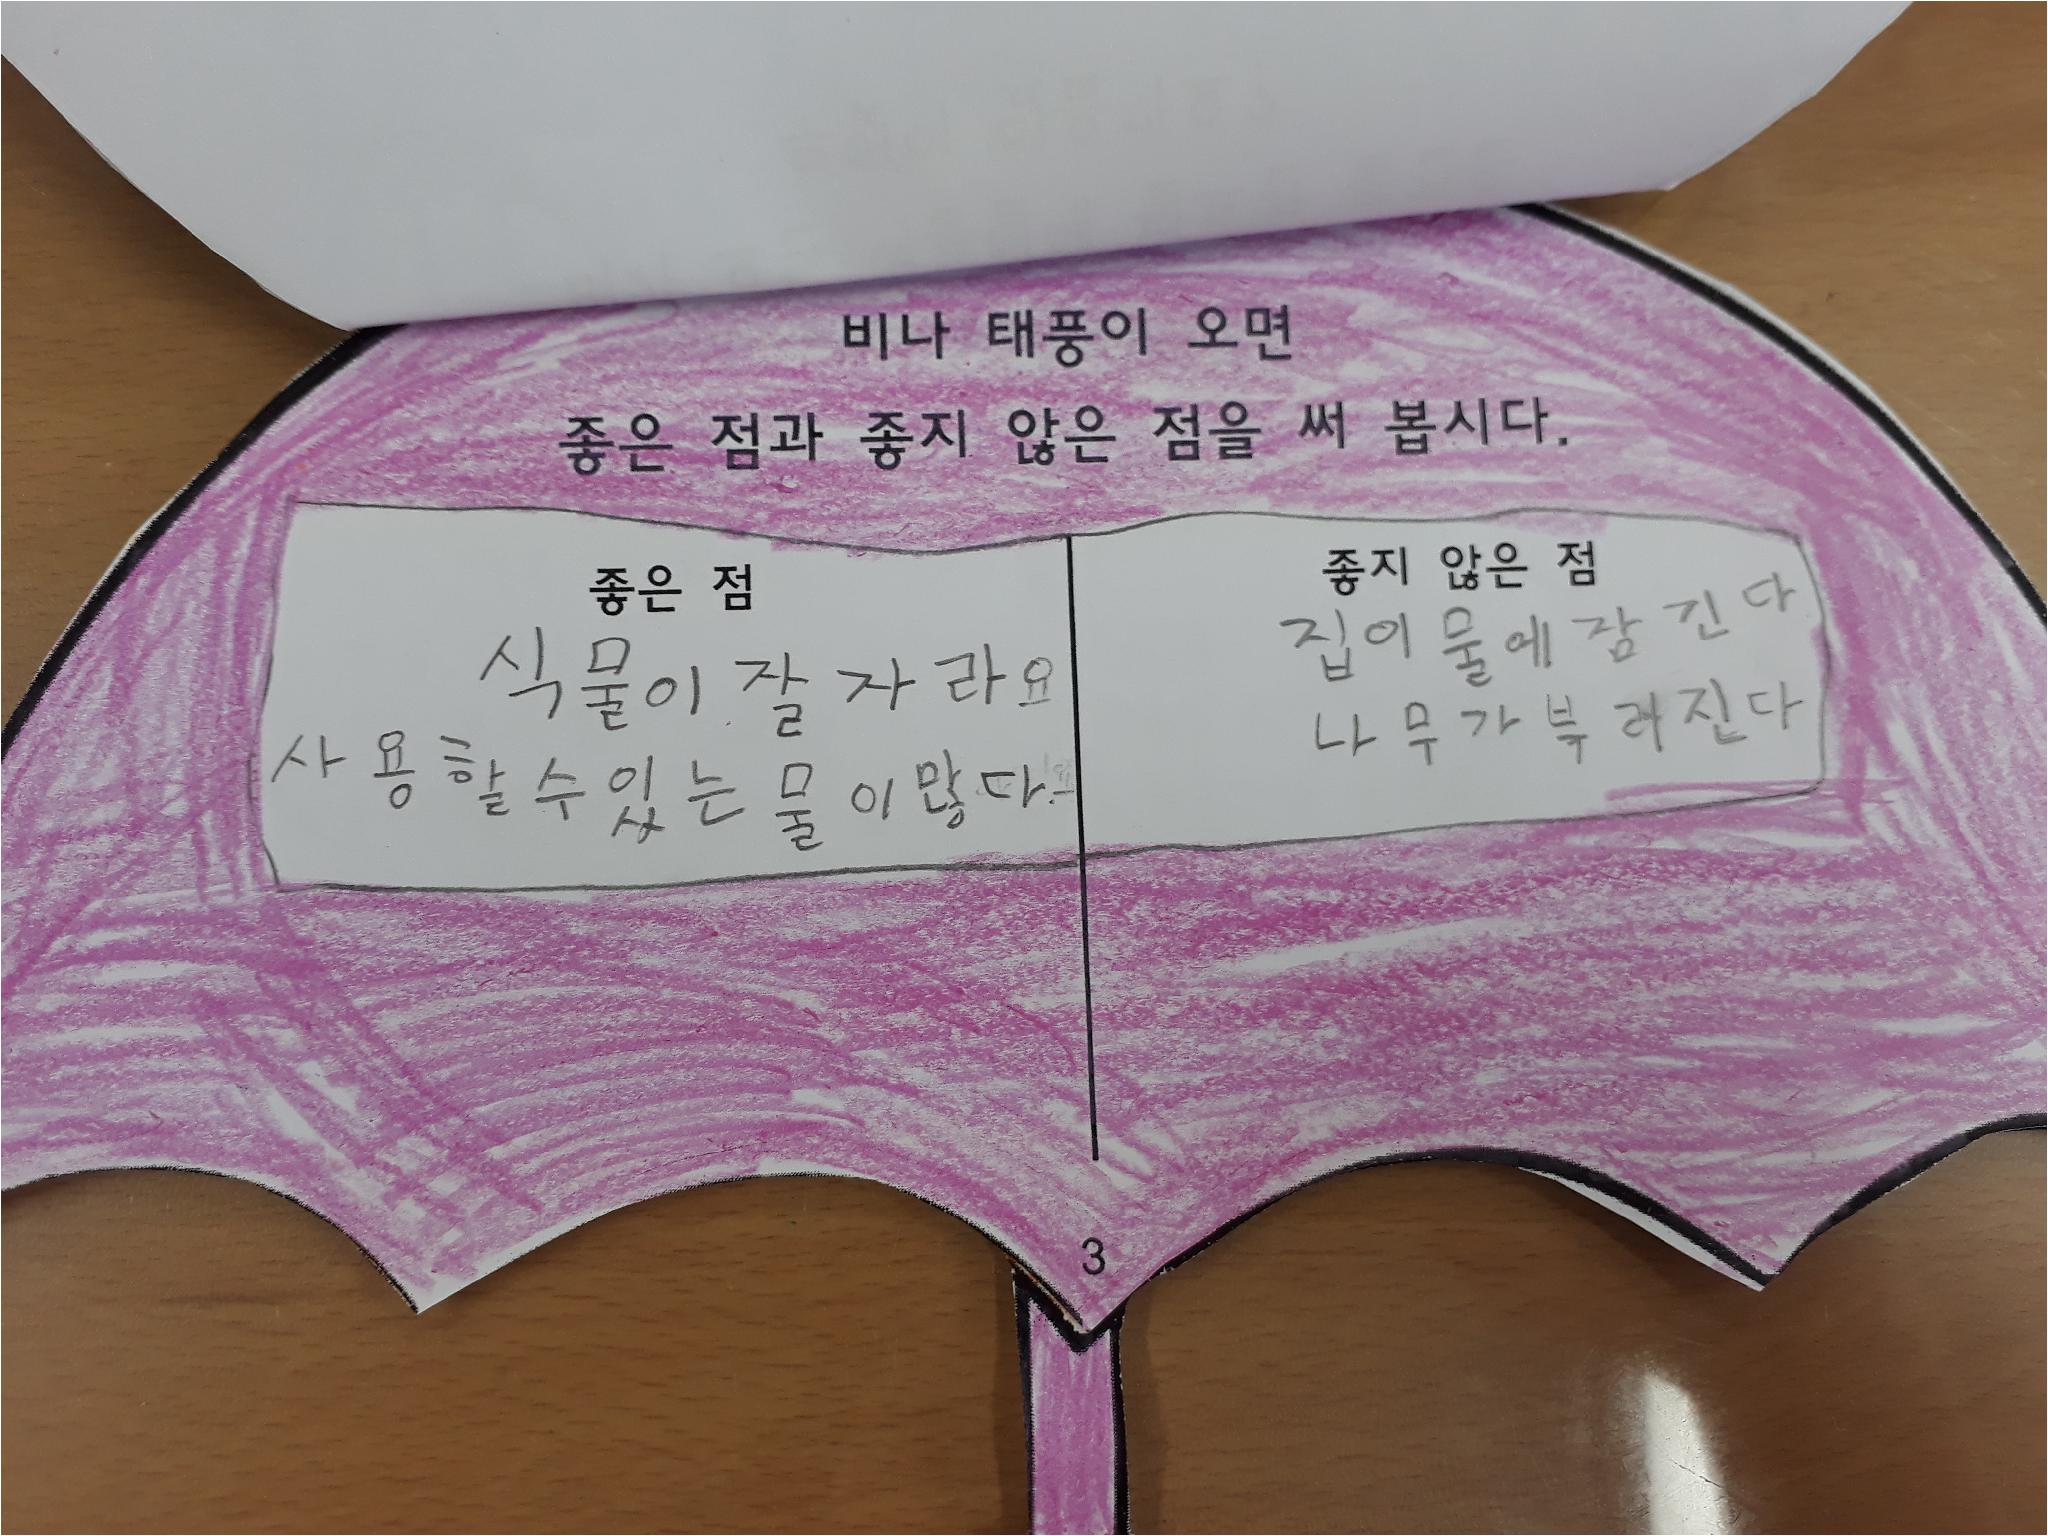 비나 태풍이 오면
좋은 점과 좋지 않은 점을 써 봅시다.
좋은 점
식물이 잘 자라요
사용할 수 있는 물이 많다
좋지 않은 점
집이 물에 잠긴다
나무가 부러진다
3